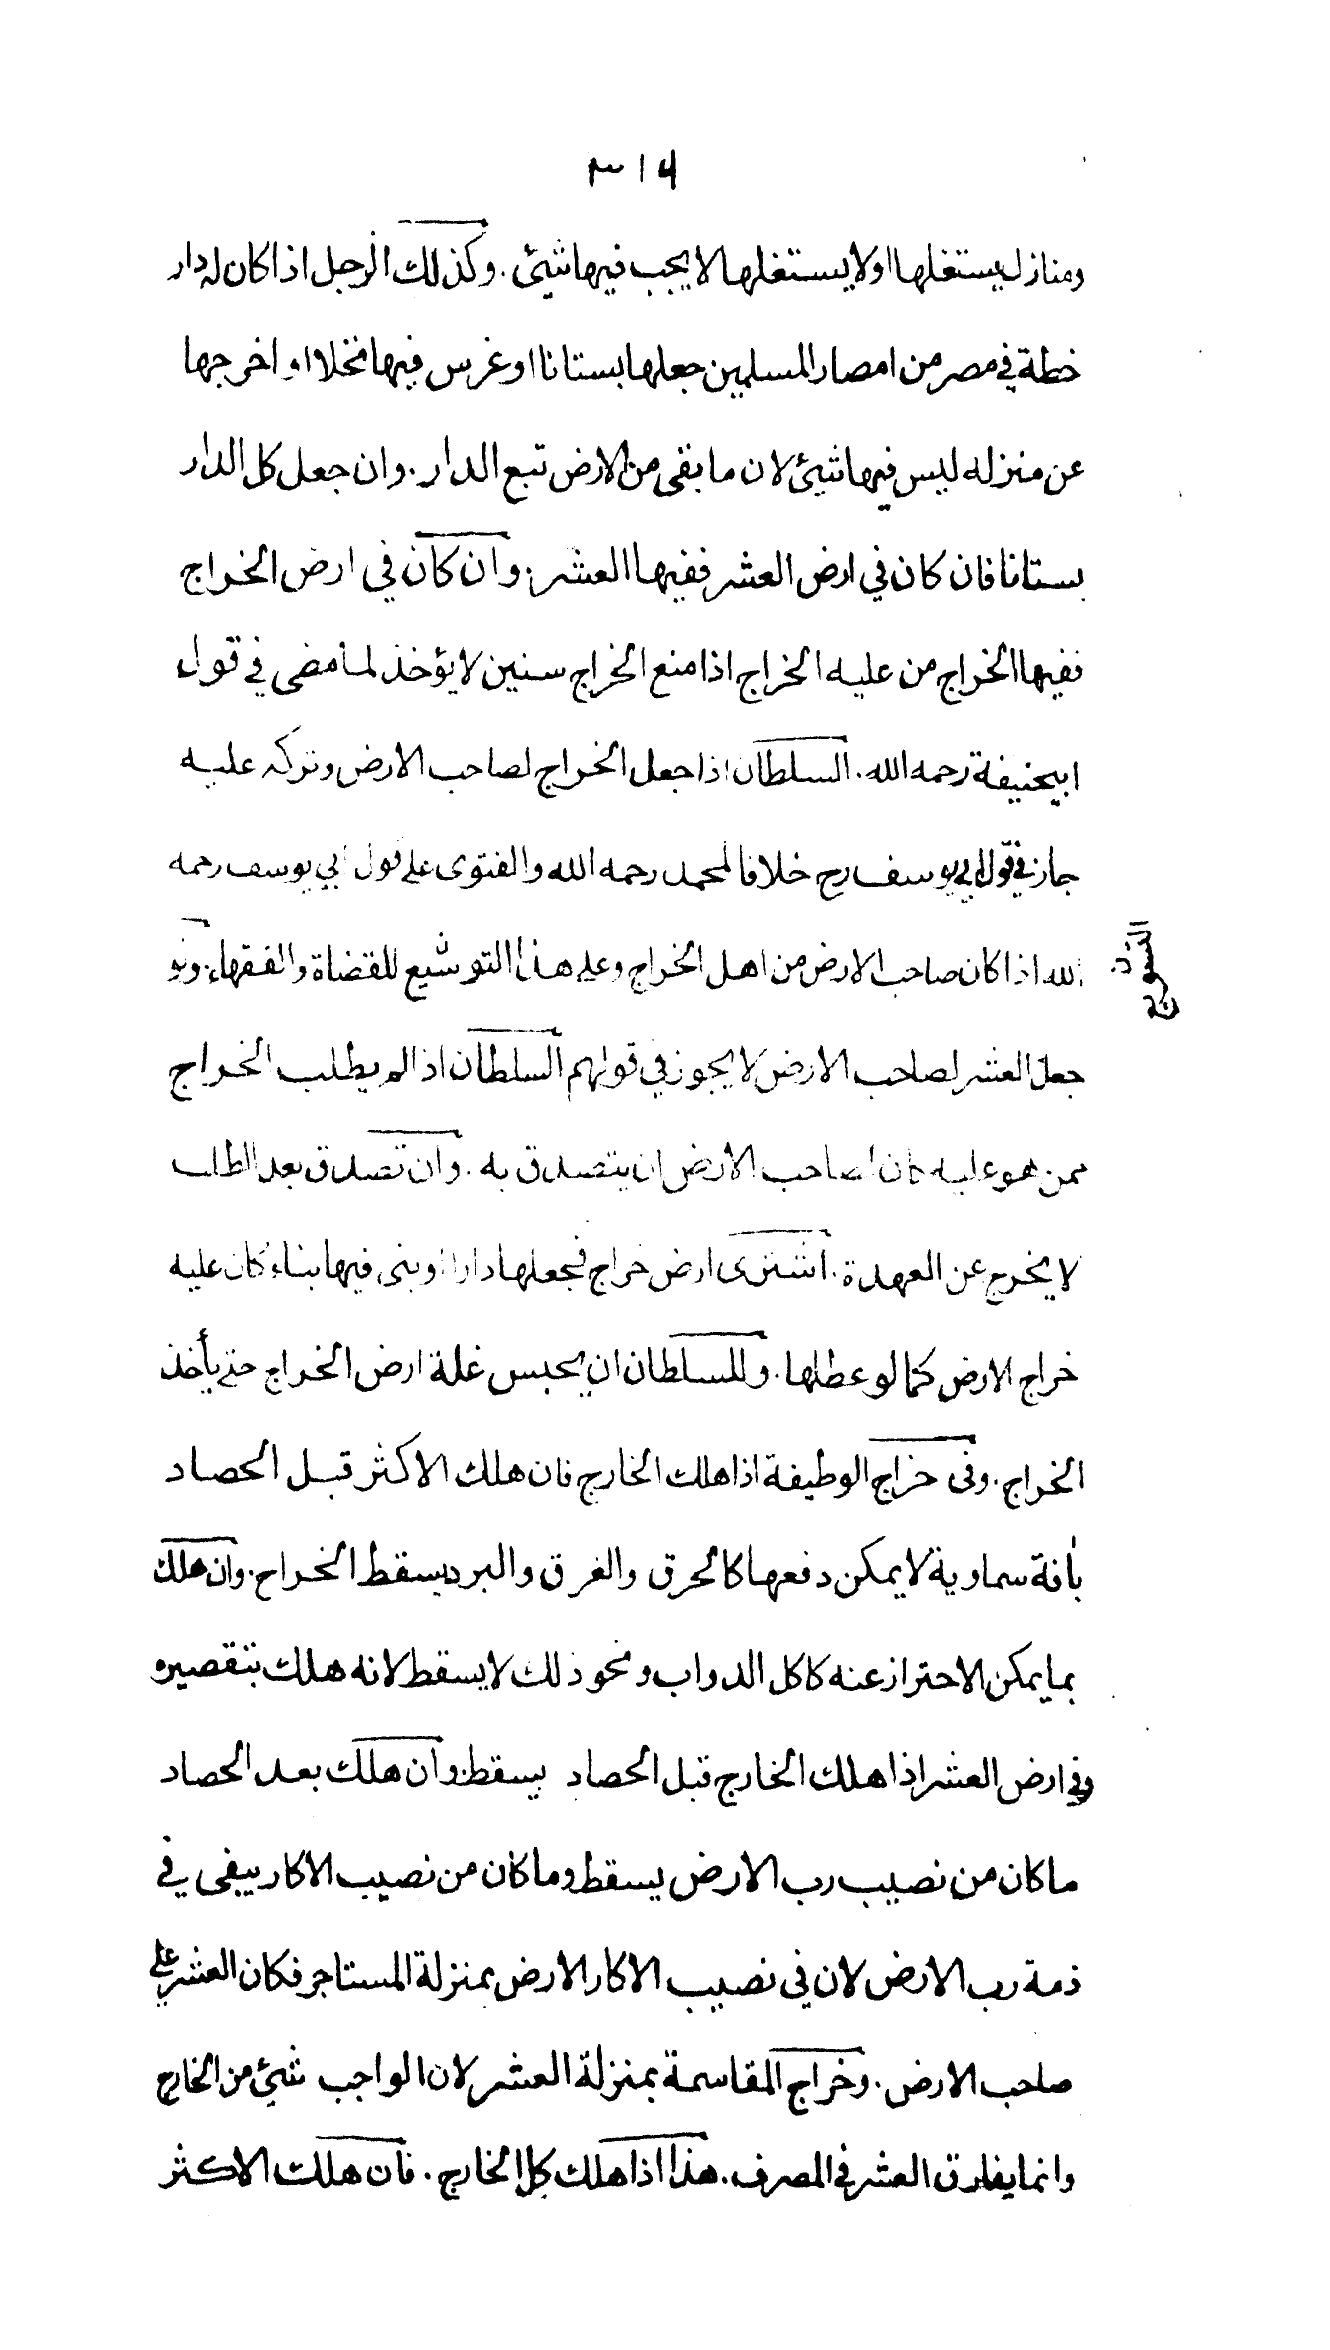 ٣١٤
ومنازل يستغلها اولا يستغلها لا يجب فيها شيئ . وكذلك الرجل اذا كان له دار
خطة في مصر من امصار المسلمين جعلها بستانا او غرس فيها نخلا او اخرجها
عن منزله ليس فيها شيئ لان ما بقى من الارض تبع الدار . وان جعل كل الدار
بستانا فان كان في ارض العشر ففيها العشر . وان كان في ارض الخراج
ففيها الخراج من عليه الخراج اذا منع الخراج سنين لا يؤخذ لما مضى في قول
ابيحنيفة رحمه الله . السلطان اذا جعل الخراج لصاحب الارض وتركه عليه
جاز في قول ابي يوسف رح خلافا لمحمد رحمه الله والفتوى على قول ابي يوسف رحمه
الله اذا كان صاحب الارض من اهل الخراج وعلى هذا التوشيع للقضاة والفقهاء . ولو
جعل العشر لصاحب الارض لا يجوز في قولهم السلطان اذا لم يطلب الخراج
ممن هو عليه كان لصاحب الارض ان يتصدق به . وان تصدق بعد الطلب
لا يخرج عن العهدة . اشترى ارض خراج فجعلها دارا او بنى فيها بناء كان عليه
خراج الارض كما لو عطلها . وللسلطان ان يحبس غلة ارض الخراج حتى يأخذ
الخراج . وفى خراج الوظيفة اذا هلك الخارج فان هلك الاكثر قبل الحصاد
بأفة سماوية لا يمكن دفعها كالحرق والغرق والبرد يسقط الخراج . وان هلك
بما يمكن الاحتراز عنه كاكل الدواب ونحو ذلك لا يسقط لانه هلك بتقصيره
وفي ارض العشر اذا هلك الخارج قبل الحصاد يسقط . وان هلك بعد الحصاد
ما كان من نصيب رب الارض يسقط وما كان من نصيب الاكار يبقى في
ذمة رب الارض لان في نصيب الاكار الارض بمنزلة المستاجر فكان العشر على
صاحب الارض . وخراج المقاسمة بمنزلة العشر لان الواجب شيئ من الخارج
وانما يفارق العشر في المصرف . هذا اذا هلك كل الخارج . فان هلك الاكثر